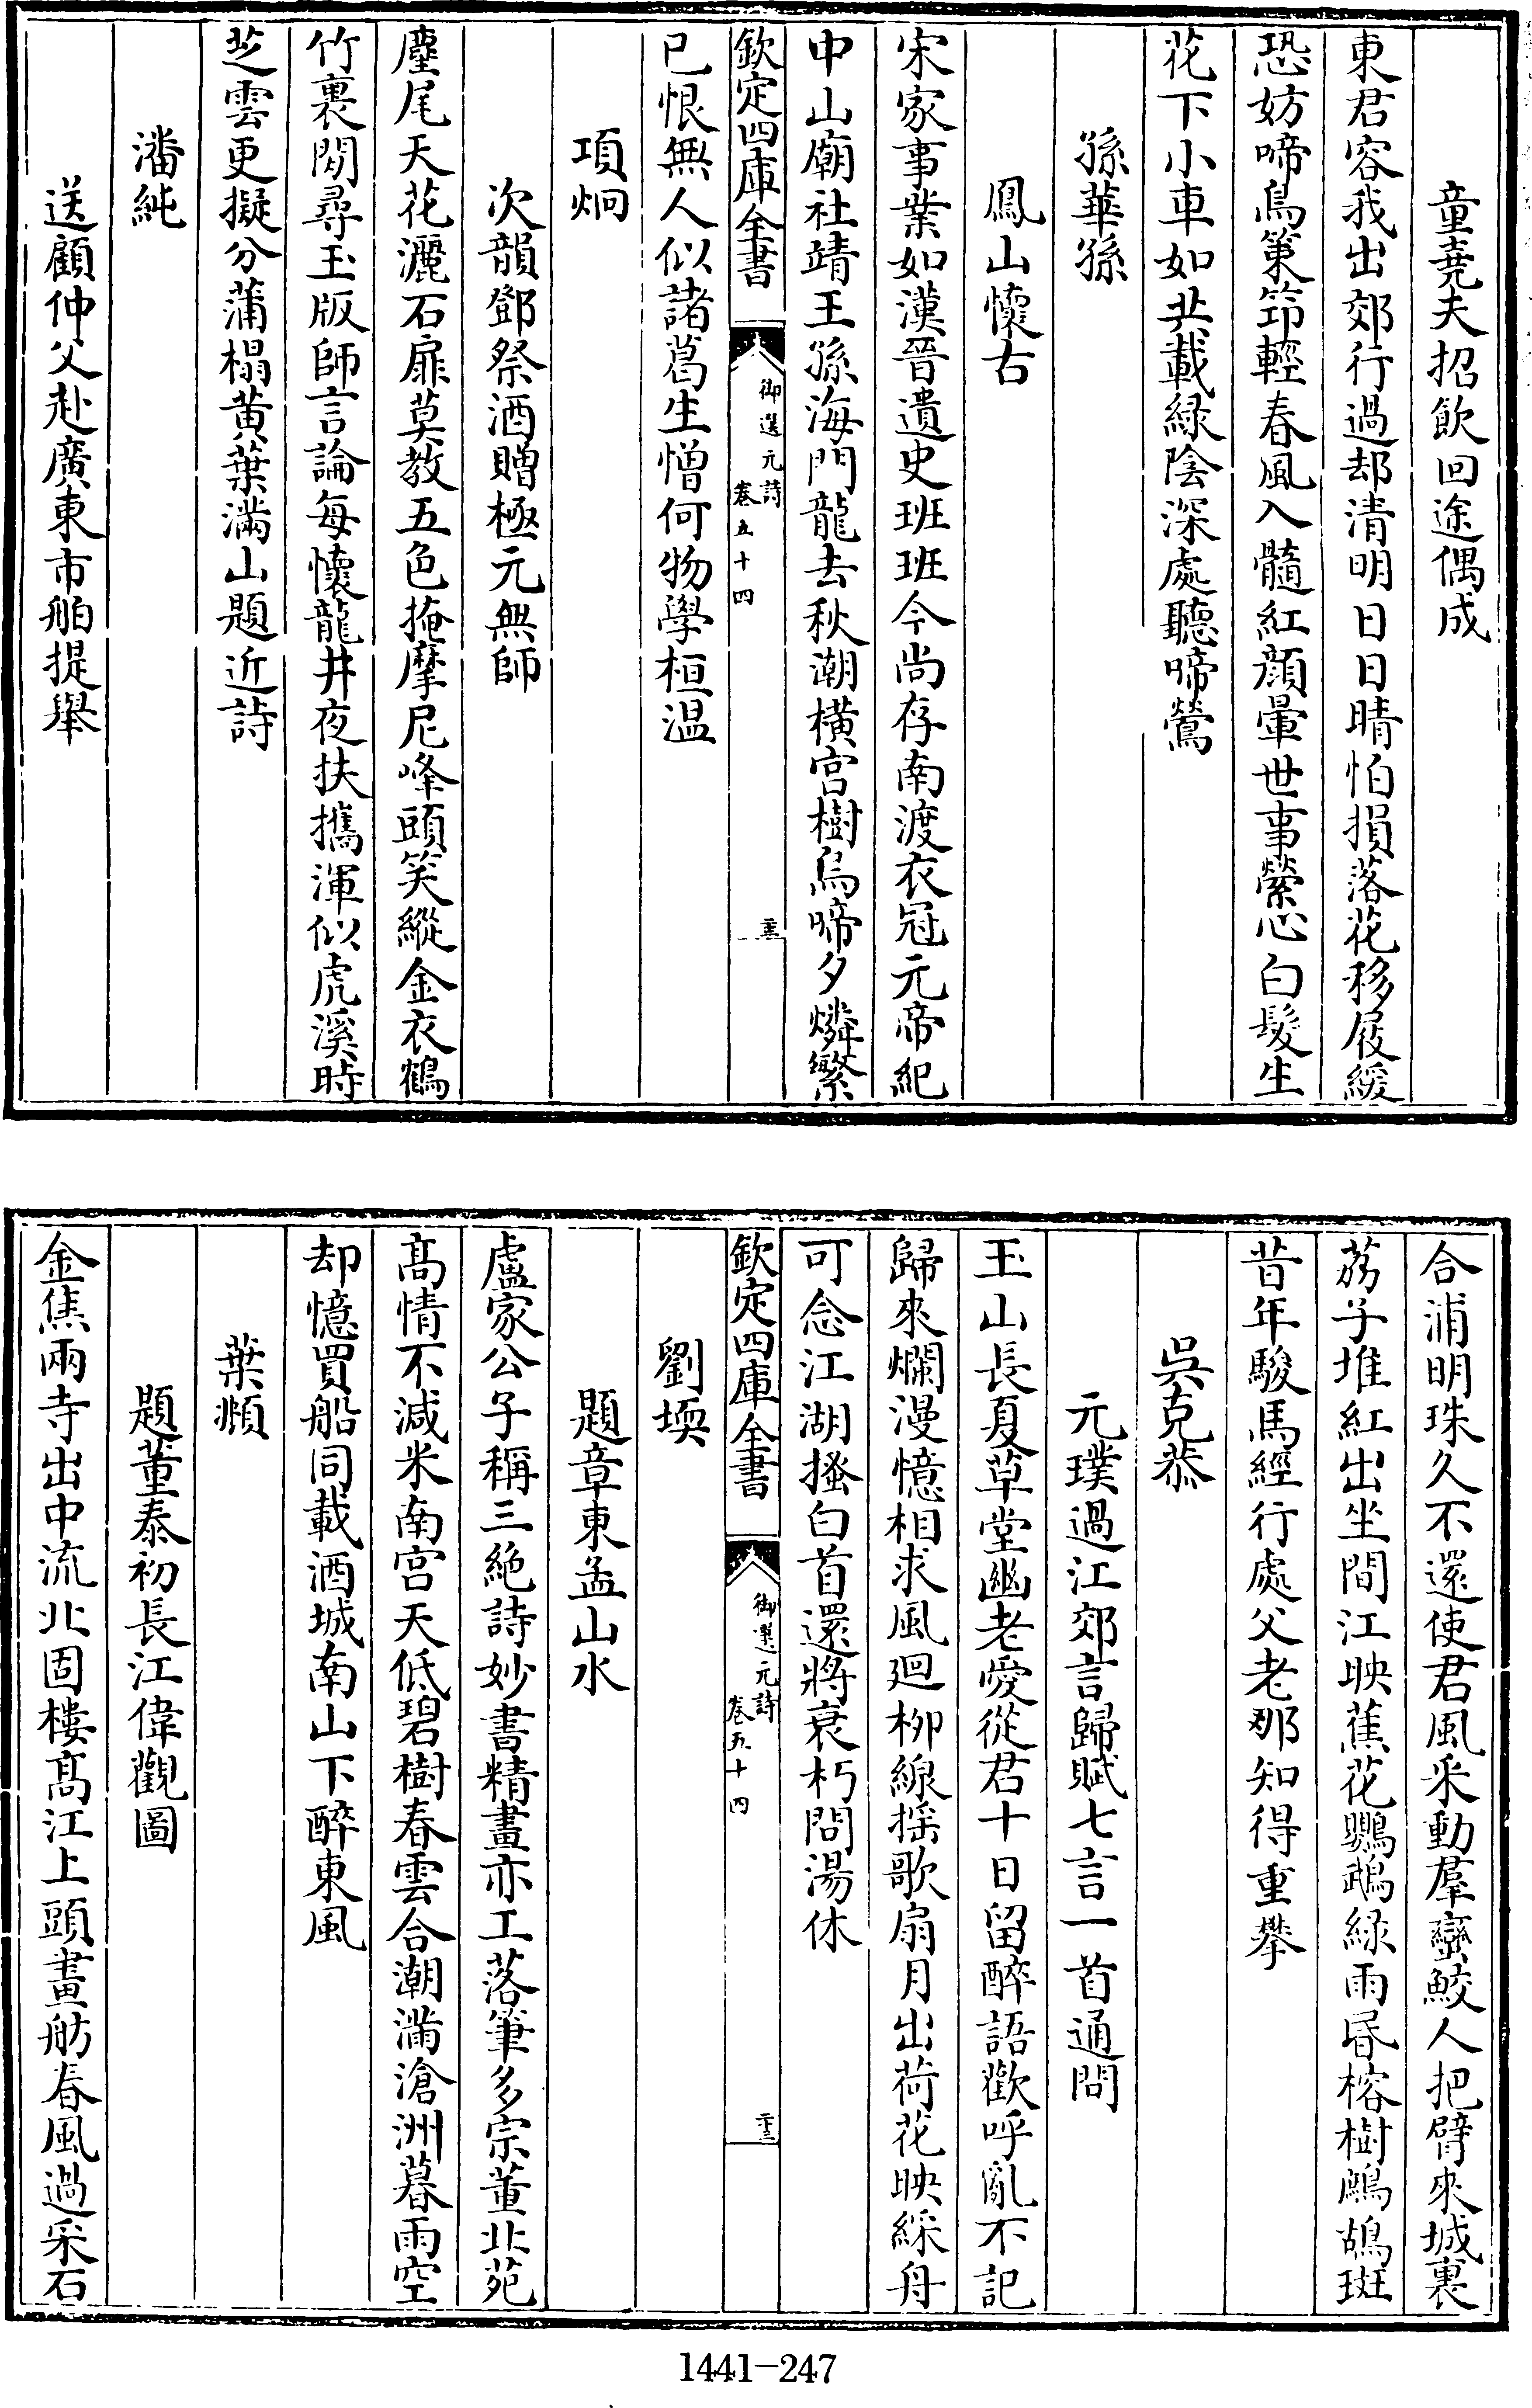 童堯夫招飲回途偶成
東君容我出郊行過却清明日日晴怕損落花移屐緩
恐妨啼鳥䇿筇輕春風入髓紅顔暈世事縈心白髮生
花下小車如共載緑陰深處聽啼鶯
孫華孫
鳳山懷古
宋家事業如漢晉遺史班班今尚存南渡衣冠元帝紀
中山廟社靖王孫海門龍去秋潮橫宫樹烏啼夕燐繁
欽定四庫全書
御選元詩
卷五十四
二十三
已恨無人似諸葛生憎何物學桓温
項炯
次韻鄧祭酒贈極元無師
麈尾天花灑石扉莫教五色掩摩尼峰頭笑縱金衣鶴
竹裏閒尋玉版師言論每懷龍井夜扶攜渾似虎溪時
芝雲更擬分蒲榻黄葉滿山題近詩
潘純
送顧仲父赴廣東市舶提舉
合浦明珠久不還使君風采動羣蠻鮫人把臂來城裏
荔子堆紅出坐間江映蕉花鸚鵡緑雨昬榕樹鷓鴣斑
昔年駿馬經行處父老那知得重攀
吳克恭
元璞過江郊言歸賦七言一首通問
玉山長夏草堂幽老愛從君十日留醉語歡呼亂不記
歸來爛漫憶相求風廻柳線揺歌扇月出荷花映綵舟
可念江湖搔白首還將衰朽問湯休
欽定四庫全書
御選元詩
卷五十四
二十三
劉堧
題章東孟山水
盧家公子稱三絶詩妙書精畫亦工落筆多宗董北苑
髙情不減米南宫天低碧樹春雲合潮滿滄洲暮雨空
却憶買船同載酒城南山下醉東風
葉顒
題董泰初長江偉觀圖
金焦兩寺出中流北固樓髙江上頭畫舫春風過采石
1441-247